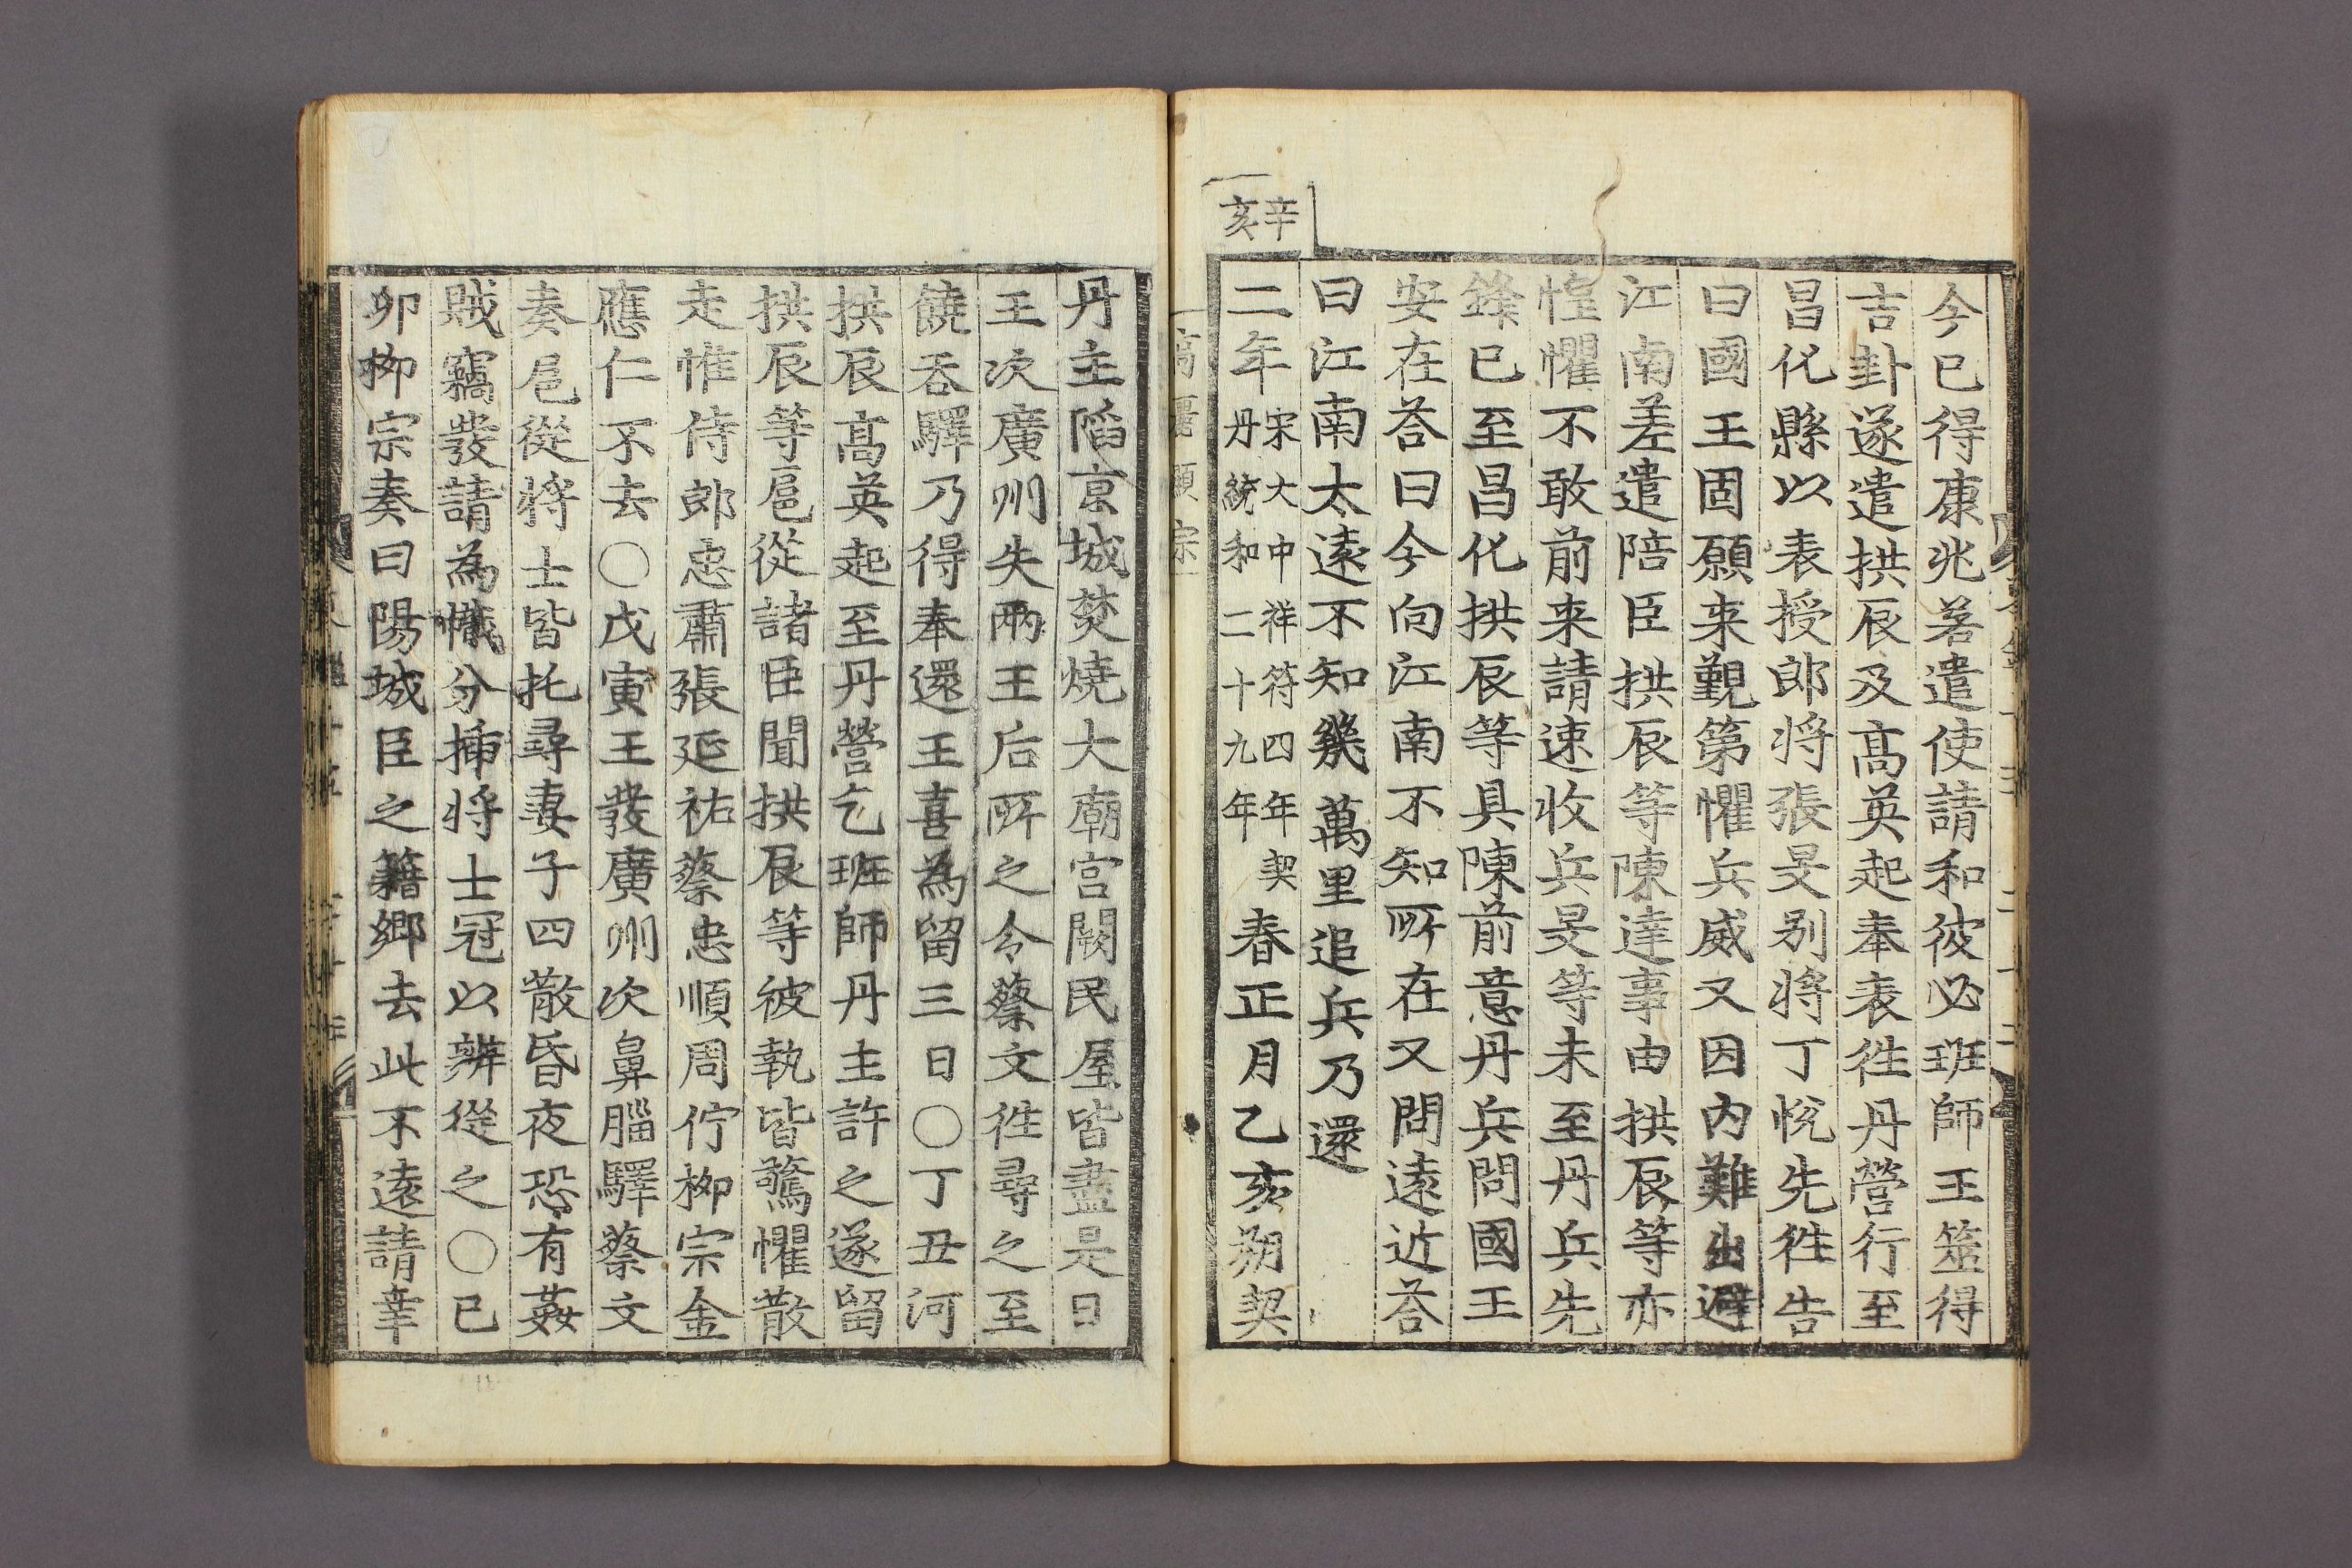 今已得康兆若遣使請和彼必班師王筮得
吉卦遂遣拱辰及高英起奉表徃丹營行至
昌化縣以表授郎將張旻别將丁恱先徃告
曰國王固願来覲第懼兵威又因内難出避
江南差遣陪臣拱辰等陳達事由拱辰等亦
惶懼不敢前来請速收兵旻等未至丹兵先
鋒已至昌化拱辰等具陳前意丹兵問國王
安在荅曰今向江南不知所在又問遠近荅
曰江南太遠不知幾萬里追兵乃還
辛亥
二年宋大中祥符四年契丹統和二十九年春正月乙亥朔契
丹主䧟京城焚燒大廟宫闕民屋皆盡是日
王次廣州失兩王后所之令蔡文徃尋之至
饒呑驛乃得奉還王喜為留三日〇丁丑河
拱辰高英起至丹營乞班師丹主許之遂留
拱辰等扈從諸臣聞拱辰等彼執皆驚懼散
走惟侍郎忠肅張延祐蔡忠順周佇柳宗金
應仁不去〇戊寅王發廣州次鼻腦驛蔡文
奏扈從將士皆托尋妻子四散昏夜恐有姦
賊竊發請為幟分揷將士冠以辨從之〇己
卯柳宗奏曰陽城臣之籍鄉去此不遠請幸